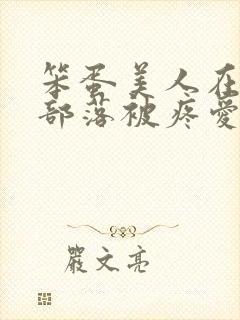 笨蛋美人在
部落被疼愛
嚴文亮